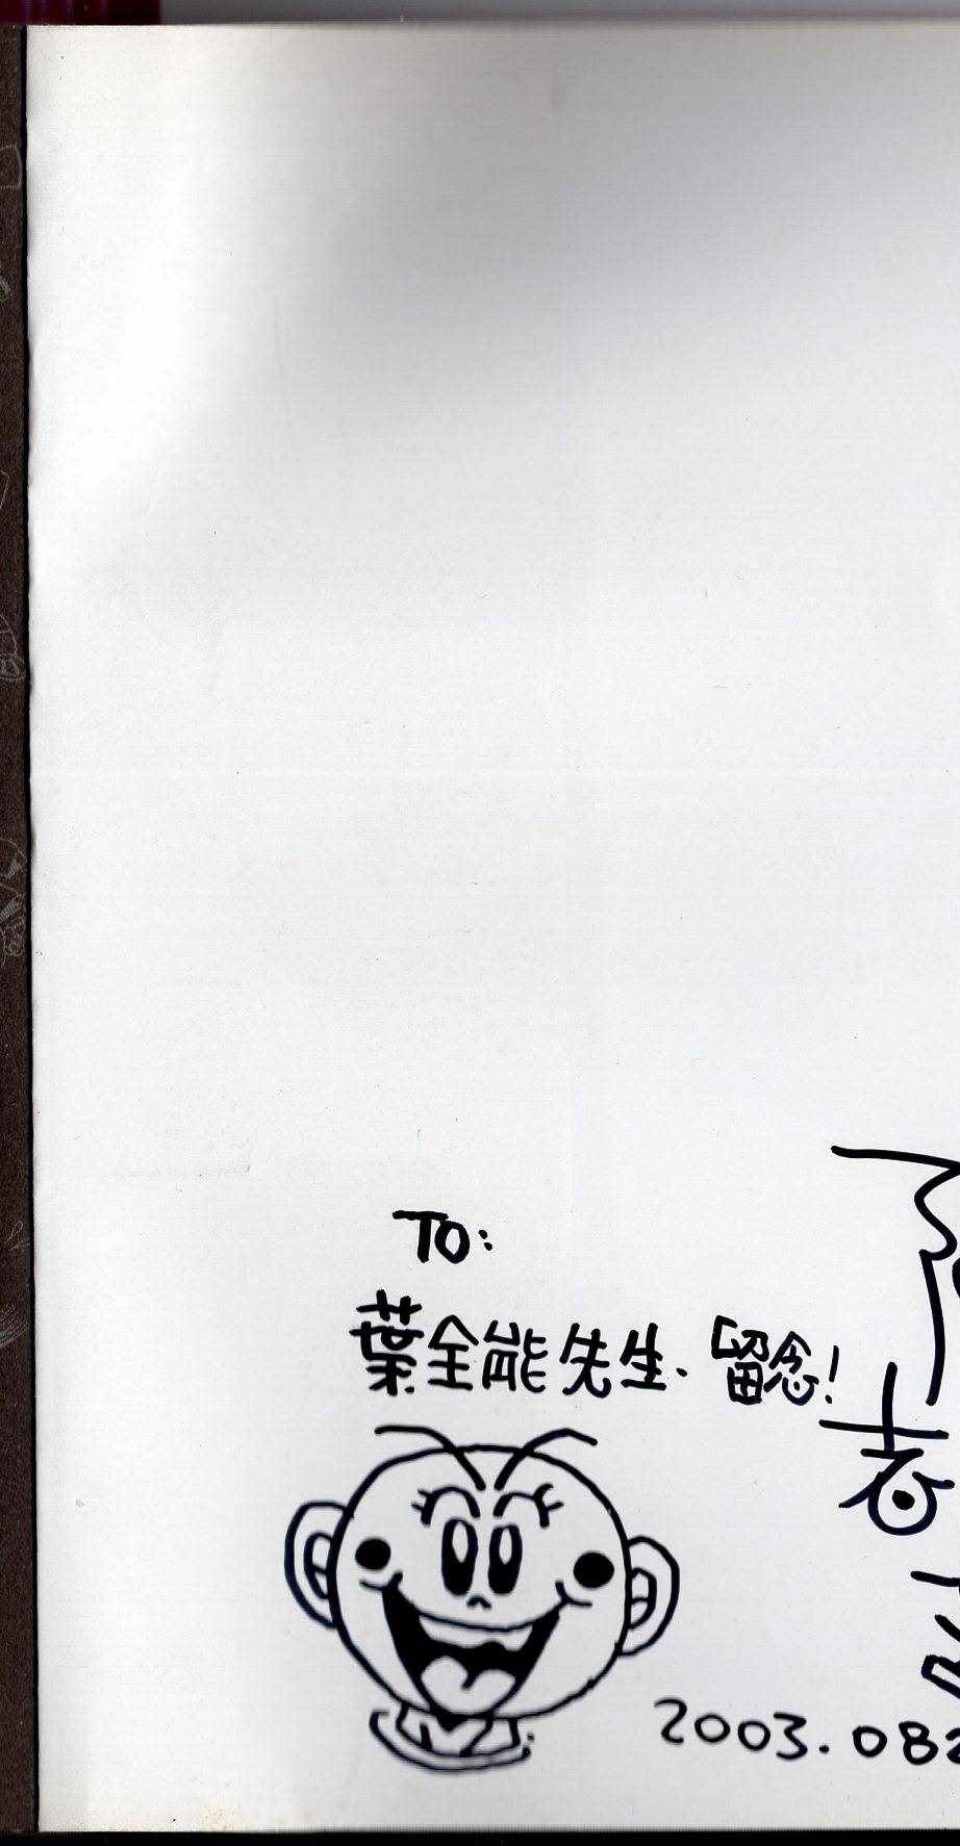 TO:
葉全能先生. 留念!
2003.082